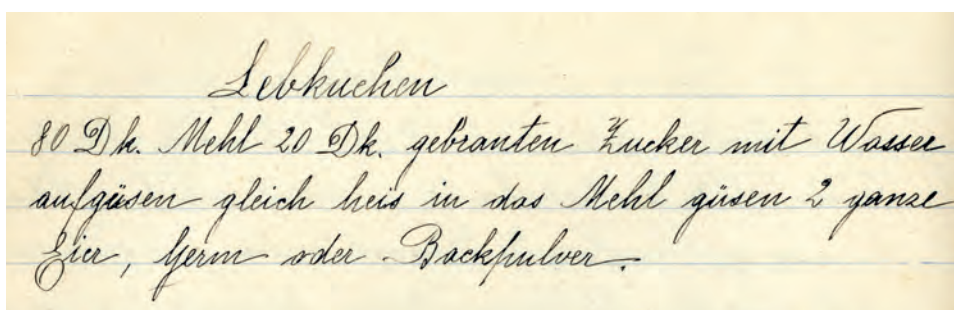 Lebkuchen
80 Dk. Mehl 20 Dk. gebranten Zucker mit Wasser
aufgüsen gleich heis in das Mehl güsen 2 ganze
Eier, Germ oder Backpulver.